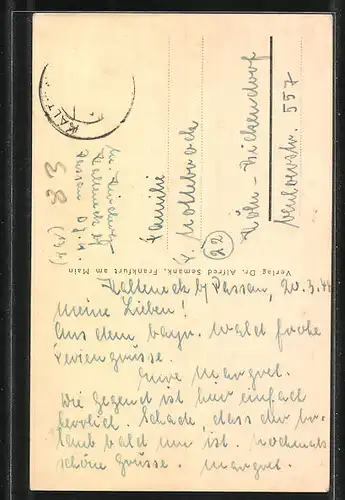 KALT
Familie
F. Mollbrock
(22)
Köln-Bickendorf
557
83
Kalteneck bei
Passau
(13b)
Verlag Dr. Alfred Semank, Frankfurt am Main
Kalteneck b/ Passau, 20.3.
Meine Lieben!
Aus dem bayr. Wald frohe
Feriengrüsse.
Eure Margret.
Die Gegend ist hier einfach
herrlich. Schade, dass der Ur-
laub bald um ist. Nochmals
schöne Grüsse. Margret.